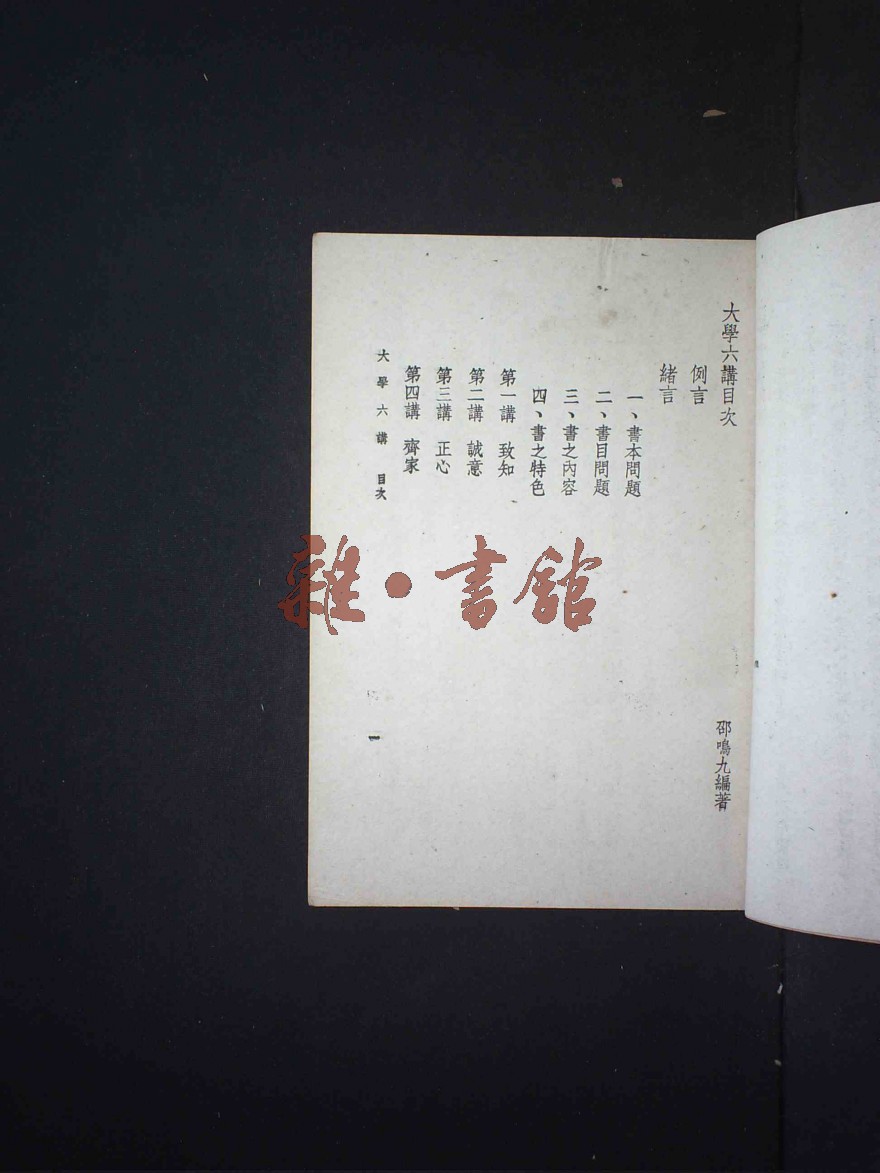 大學六講目次
邵鳴九編著
例言
緒言
一、書本問題
二、書目問題
三、書之內容
四、書之特色
第一講 致知
第二講 誠意
第三講 正心
第四講 齊家
大學六講 目次
一
雜·書館